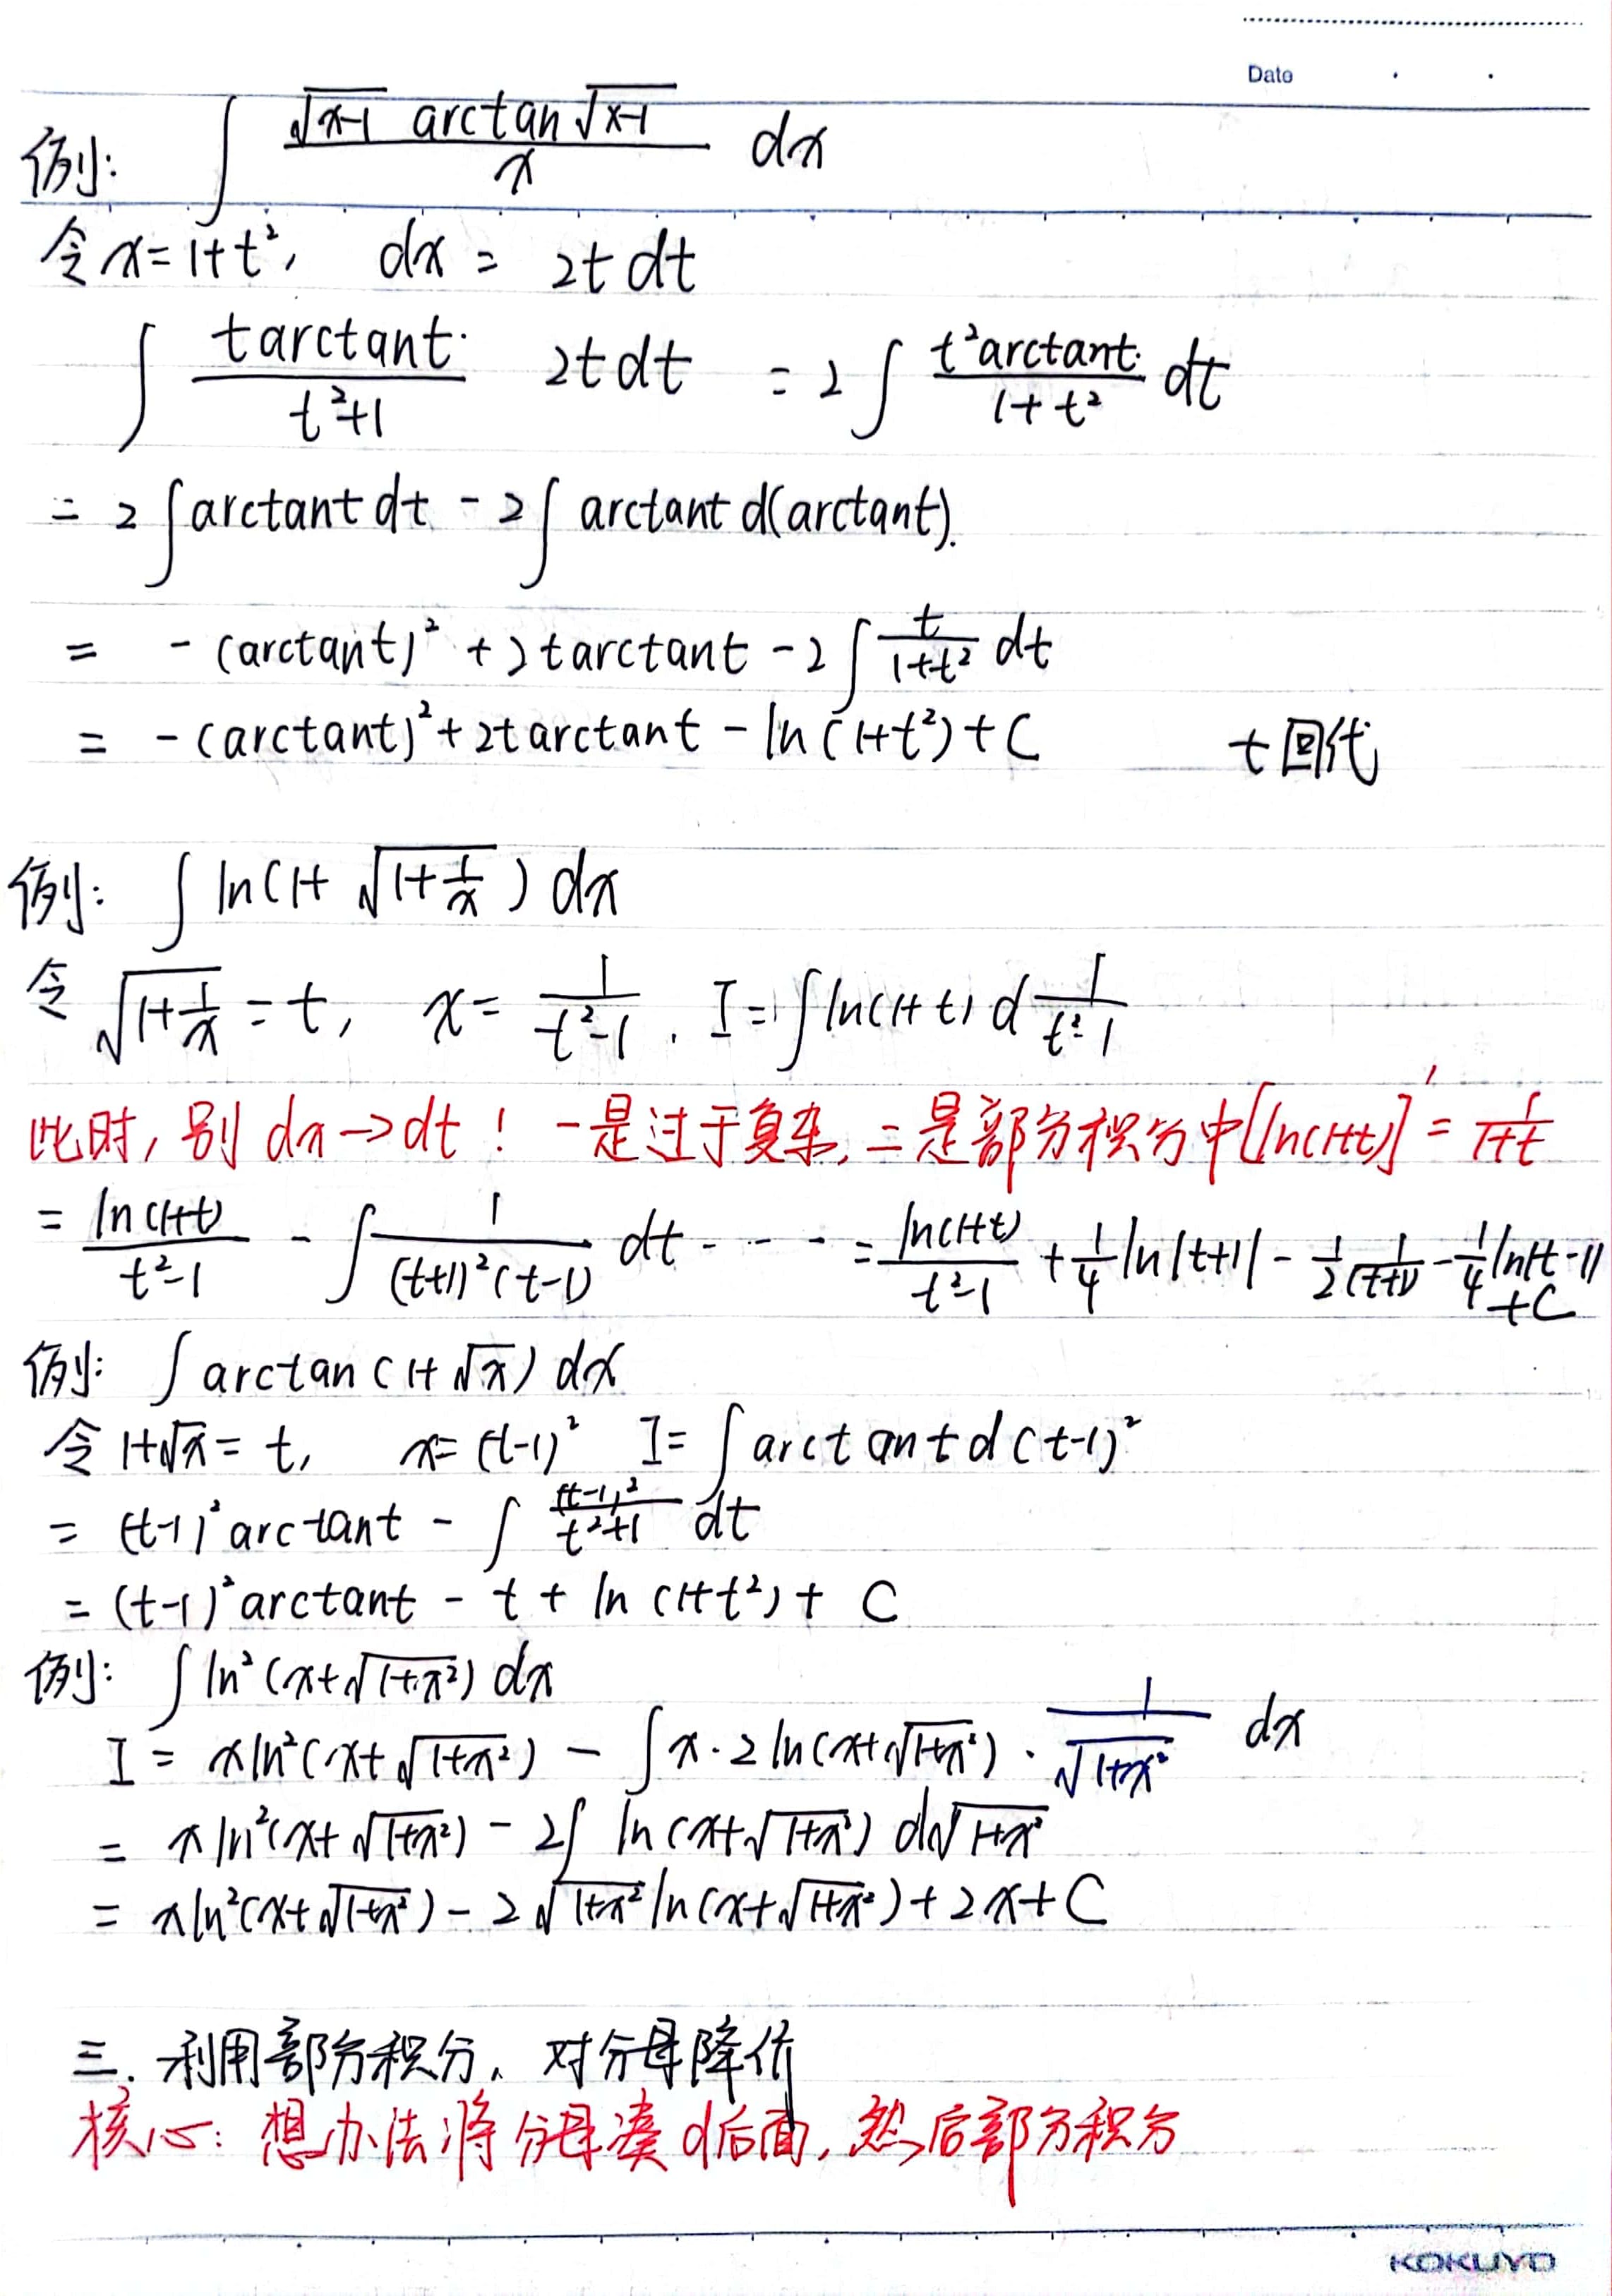 Date
例: ∫ √(x-1) arctan√(x-1) / x dx
令 x=1+t², dx = 2t dt
∫ t arctant / (t²+1) 2t dt = 2∫ t² arctant / (1+t²) dt
= 2∫ arctant dt - 2∫ arctant d(arctant).
= -(arctant)² + 2t arctant - 2∫ t/(1+t²) dt
= -(arctant)² + 2t arctant - ln(1+t²) + C t回代
例: ∫ ln(1+√(1+1/x)) dx
令 √(1+1/x) = t, x = 1/(t²-1). I = ∫ ln(1+t) d 1/(t²-1)
此时, 别 dx→dt! 一是过于复杂, 二是部分积分中[ln(1+t)]' = 1/(1+t)
= ln(1+t)/(t²-1) - ∫ 1/((t+1)²(t-1)) dt - - - = ln(1+t)/(t²-1) + 1/4 ln|t+1| - 1/2 1/(t+1) - 1/4 ln|t-1| + C
例: ∫ arctan(1+√x) dx
令 1+√x = t, x=(t-1)² I = ∫ arctant d(t-1)²
= (t-1)² arctant - ∫ (t-1)²/(t²+1) dt
= (t-1)² arctant - t + ln(1+t²) + C
例: ∫ ln²(x+√(1+x²)) dx
I = x ln²(x+√(1+x²)) - ∫ x·2 ln(x+√(1+x²)) · 1/√(1+x²) dx
= x ln²(x+√(1+x²)) - 2∫ ln(x+√(1+x²)) d√(1+x²)
= x ln²(x+√(1+x²)) - 2√(1+x²) ln(x+√(1+x²)) + 2x + C
三. 利用部分积分, 对分母降价
核心: 想办法将分母凑d后面, 然后部分积分
KOKUYO